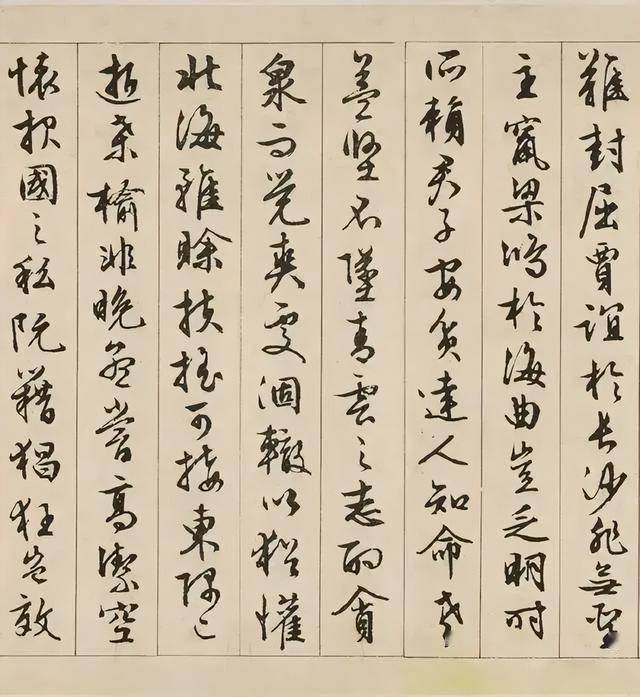 難封屈賈誼於長沙非無聖
主竄梁鴻於海曲豈乏明時
所賴君子安貧達人知命老
益堅不墜青雲之志酌貪
泉而覺爽處涸轍以猶懽
北海雖賒扶搖可接東隅已
逝桑榆非晚孟嘗高潔空
懷報國之私阮籍猖狂豈效